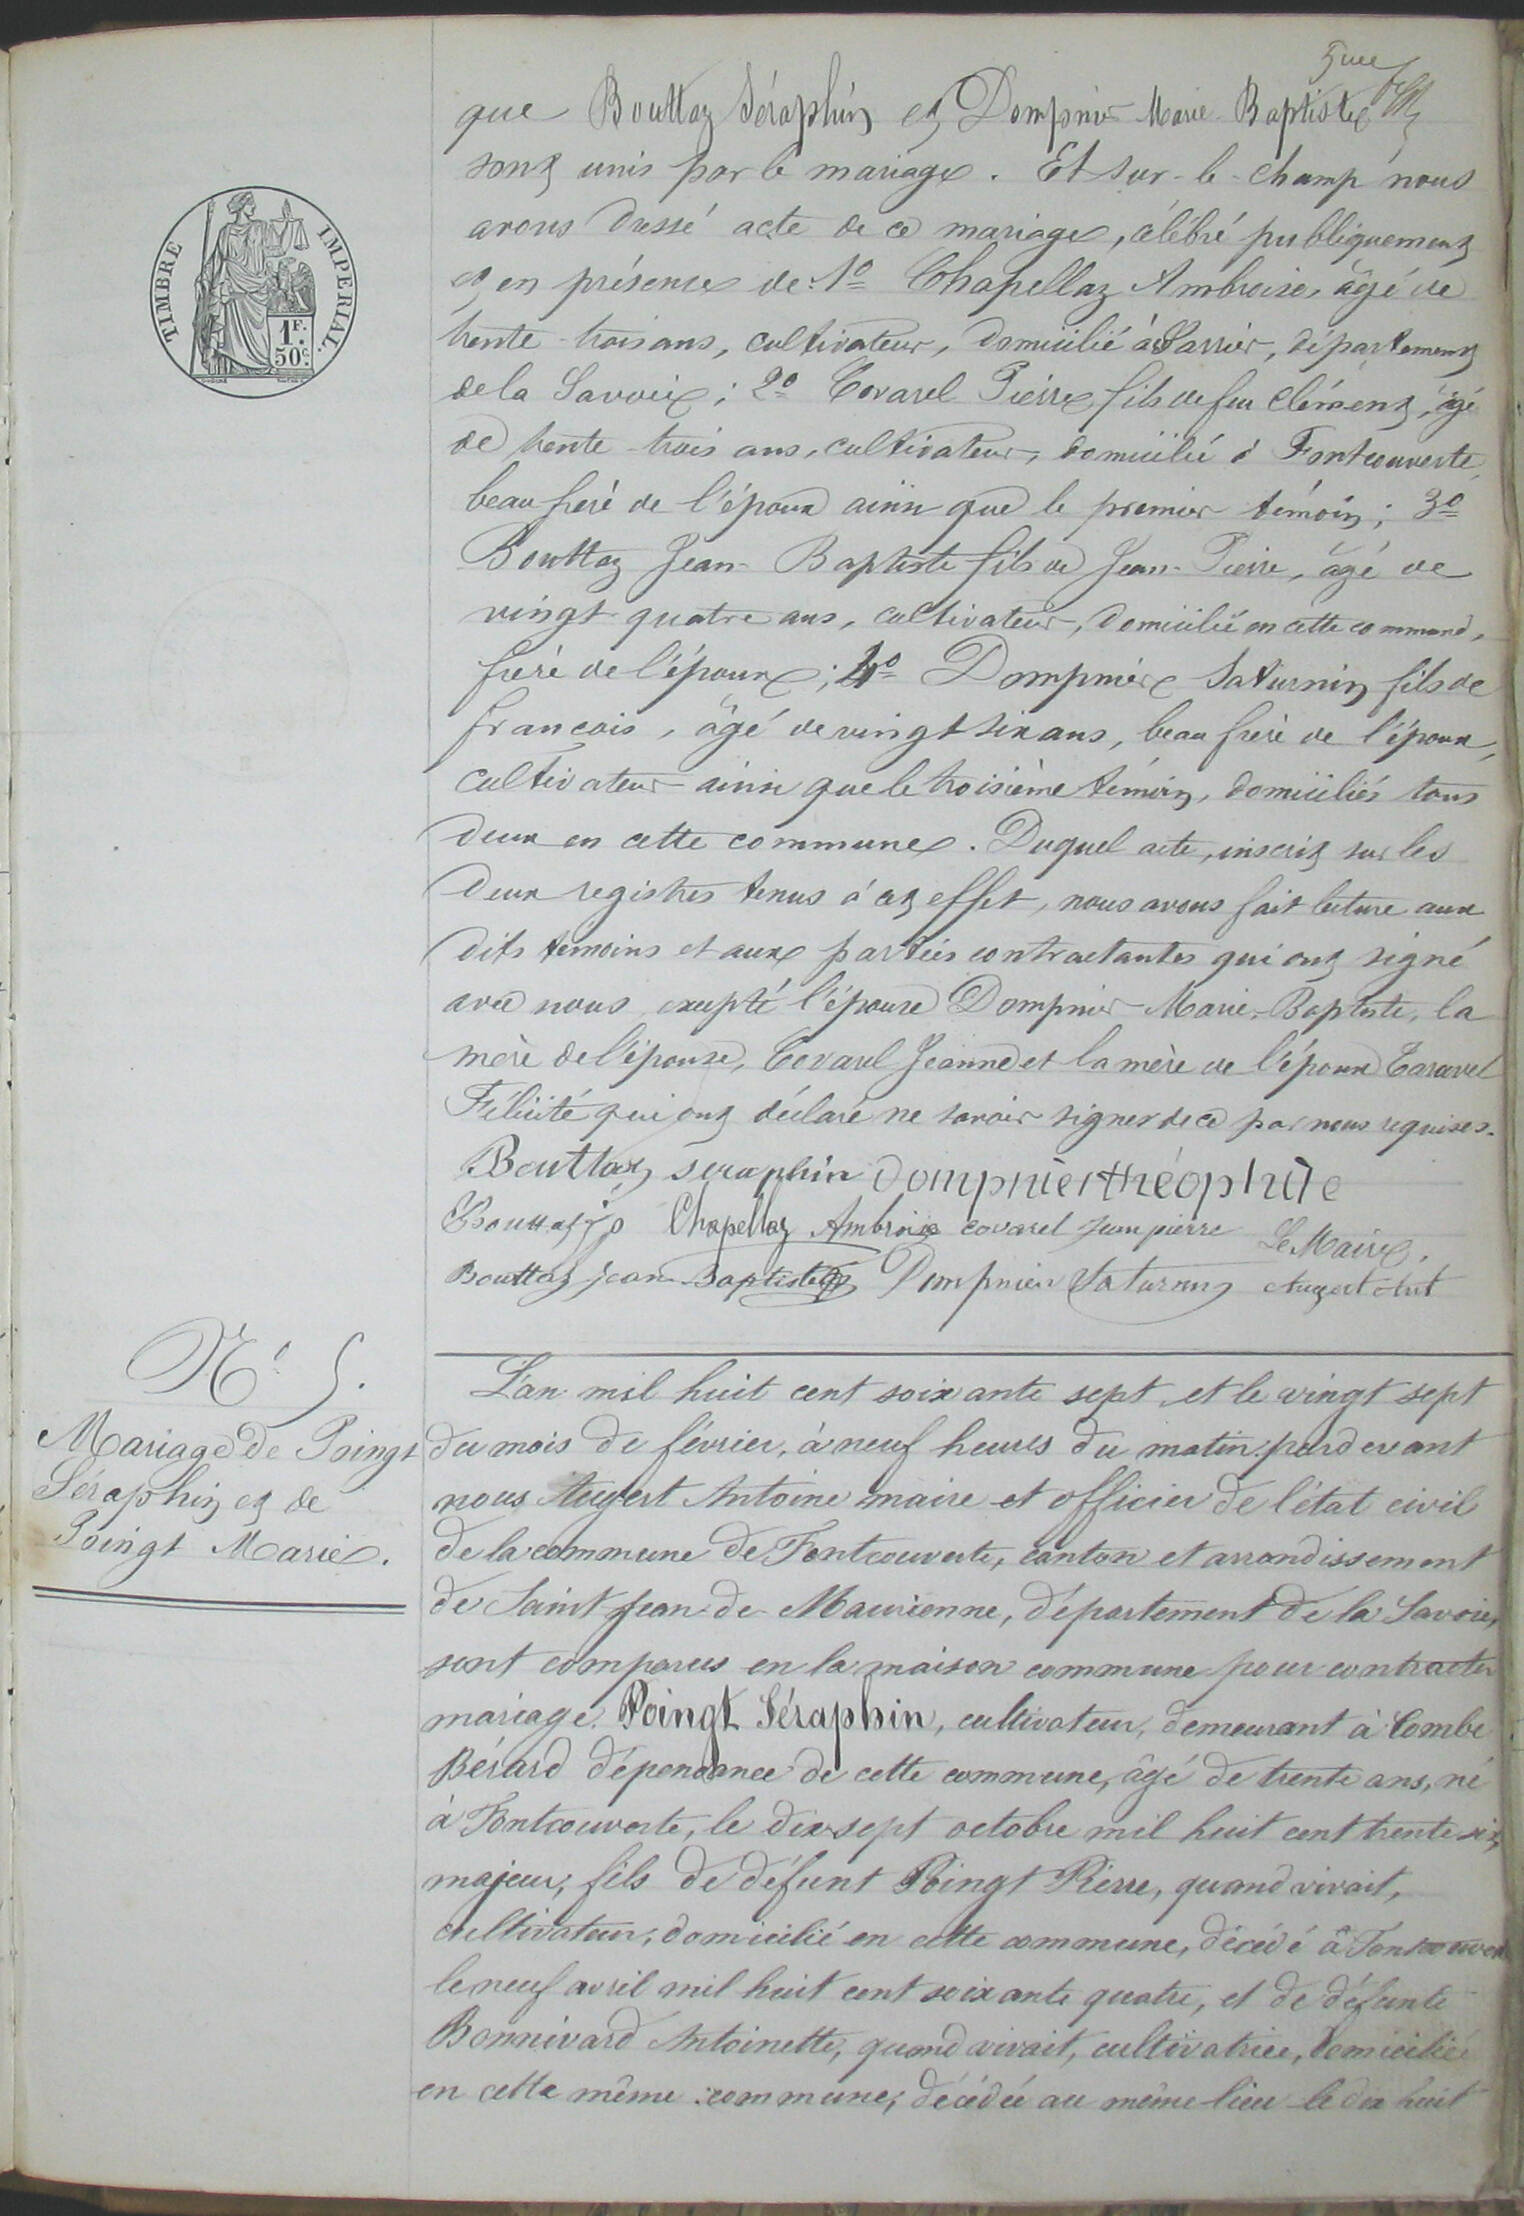 5me
que Bouttaz Séraphin et Dompnier Marie Baptiste
sont unis par le mariage. Et sur-le-champ nous
avons dressé acte de ce mariage, célébré publiquement
et en présence de: 1º Chapellaz Ambroise, âgé de
trente-trois ans, cultivateur, domicilié à Jarrier, département
de la Savoie; 2º Covarel Pierre fils de feu Clément, âgé
de trente-trois ans, cultivateur, domicilié à Fontcouverte,
beau frère de l'époux ainsi que le premier témoin; 3º
Bouttaz Jean-Baptiste fils de Jean-Pierre, âgé de
vingt-quatre ans, cultivateur, domicilié en cette commune,
frère de l'époux; 4º Dompnier Saturnin fils de
françois, âgé de vingt six ans, beau frère de l'époux,
cultivateur ainsi que le troisième témoin, domiciliés tous
deux en cette commune. Duquel acte, inscrit sur les
deux registres tenus à cet effet, nous avons fait lecture aux
dits témoins et aux parties contractantes qui ont signé
avec nous excepté l'épouse Dompnier Marie-Baptiste, la
mère de l'épouse, Covarel Jeanne et la mère de l'époux Taravel
Félicité qui ont déclaré ne savoir signer de ce par nous requises.
Bouttaz seraphin dompnier théophile
Bouttaz j p Chapellaz Ambroise covarel Jean pierre Le Maire.
Bouttaz jean Baptiste Dompnier Saturnin Augert Ant
TIMBRE IMPERIAL.
1F.
50c.
Nº 5.
Mariage de Poingt
Séraphin et de
Poingt Marie.
L'an mil huit cent soixante sept et le vingt sept
du mois de février, à neuf heures du matin pardevant
nous Augert Antoine maire et officier de l'état civil
de la commune de Fontcouverte, canton et arrondissement
de Saint Jean de Maurienne, département de la Savoie,
sont comparus en la maison commune pour contracter
mariage. Poingt Séraphin, cultivateur, demeurant à Combe
Bérard dépendance de cette commune, âgé de trente ans, né
à Fontcouverte, le dix sept octobre mil huit cent trente six,
majeur; fils de défunt Poingt Pierre, quand vivait,
cultivateur, domicilié en cette commune, décédé à Fontcouverte
le neuf avril mil huit cent soixante quatre, et de défunte
Bonnivard Antoinette, quand vivait, cultivatrice, domiciliée
en cette même commune, décédée au même lieu le dix huit